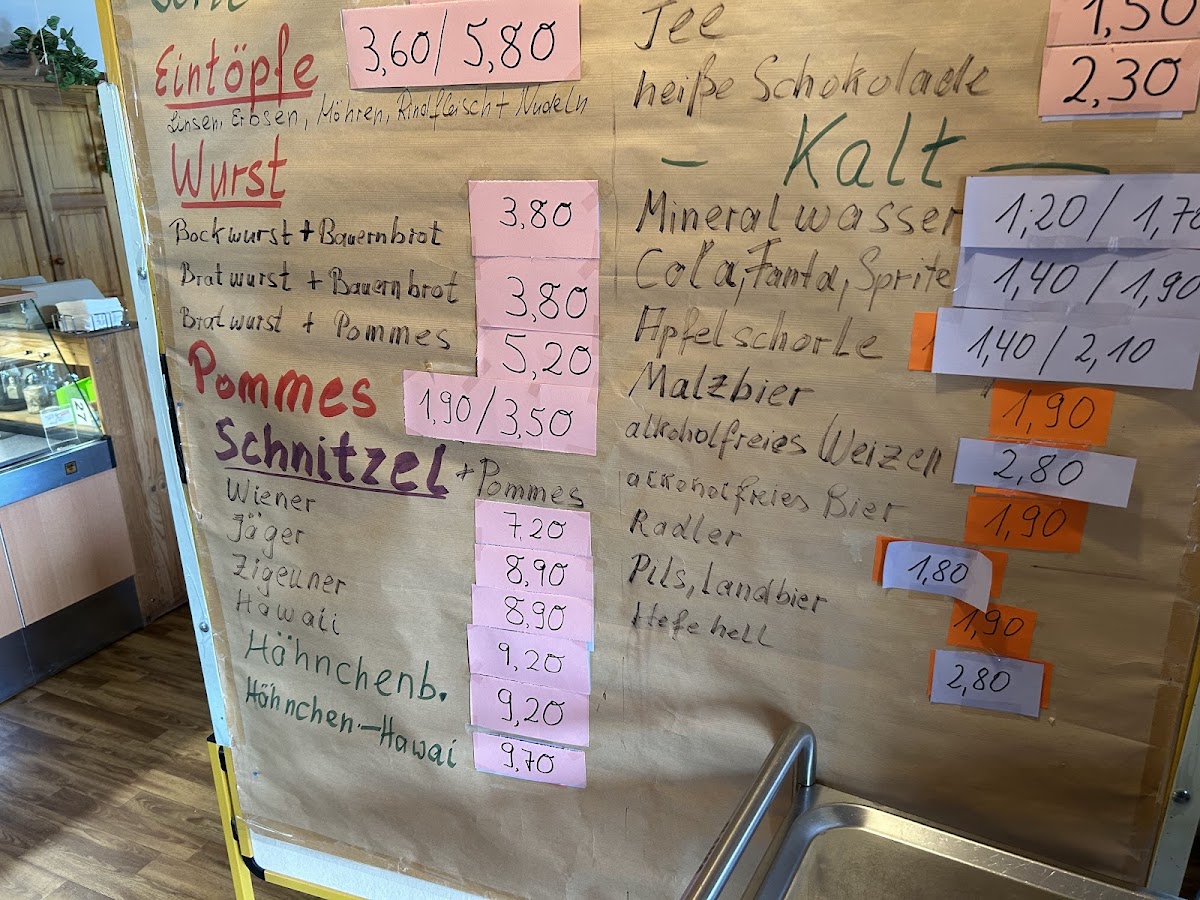 Sorte
Eintöpfe 3,60/5,80
Linsen, Erbsen, Möhren, Rindfleisch + Nudeln
Wurst
Bockwurst + Bauernbrot 3,80
Bratwurst + Bauernbrot 3,80
Bratwurst + Pommes 5,20
Pommes 1,90/3,50
Schnitzel + Pommes
Wiener 7,20
Jäger 8,90
Zigeuner 8,90
Hawaii 9,20
Hähnchenb. 9,20
Hähnchen-Hawai 9,70
Tee 1,50
heiße Schokolade 2,30
- Kalt -
Mineralwasser 1,20/1,70
Cola, Fanta, Sprite 1,40/1,90
Apfelschorle 1,40/2,10
Malzbier 1,90
alkoholfreies Weizen 2,80
alkoholfreies Bier 1,90
Radler 1,80
Pils, Landbier 1,90
Hefe hell 2,80
27